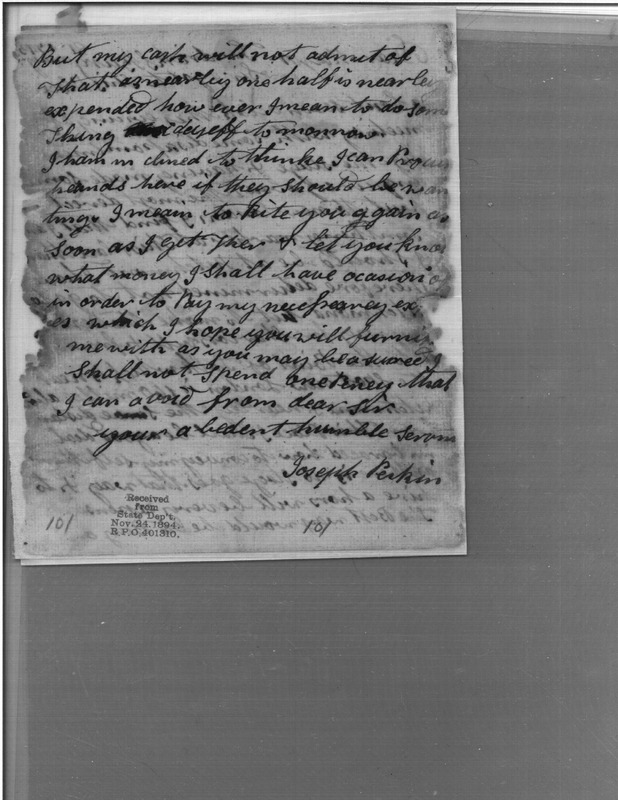 But my cash will not admit of
That as nearly one half is nearle
expended how ever I mean to do som
Thing to morrow
I ham in clined to thinke I can Procu
hands here if their should be wan
ting I mean to rite you again as
soon as I get Ther & let you know
what money I shall have ocasion o
in order to Pay my necessarey ex
es which I hope you will furni
me with as you may be asured I
shall not Spend one Peney that
I can avoid from dear Sir
your abedent humble Servn
Joseph Perkin
Received
from
State Dep't.
Nov. 24, 1894.
R.P.O. 401310.
101
101